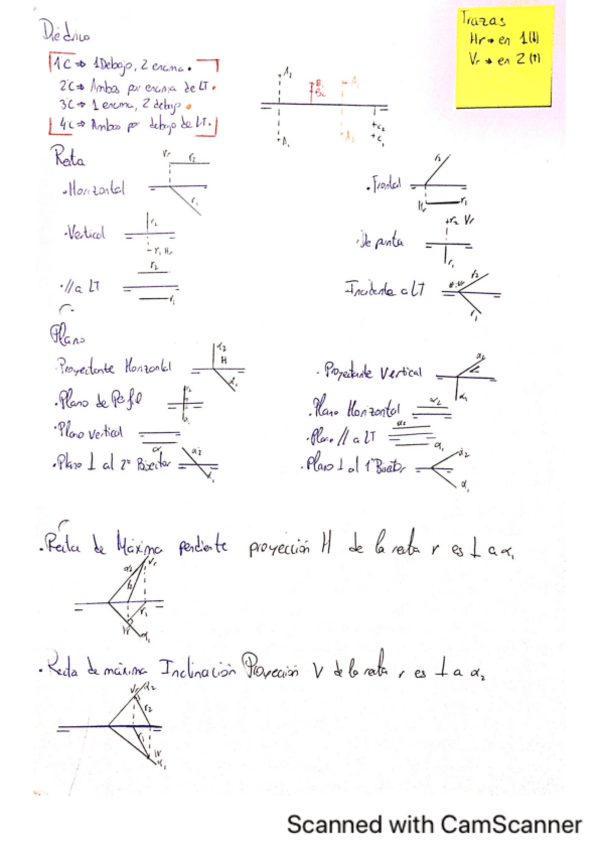 Diédrico
Trazas
Hr → en 1(↓)
Vr → en 2(↑)
1C ⇒ 1 Debajo, 2 encima.
2C ⇒ Ambos por encima de LT.
3C ⇒ 1 encima, 2 debajo
4C ⇒ Ambos por debajo de LT.
A2 B1 B2 A1
A1 A2 C2 C1
Recta
·Horizontal Vr r2 r1
·Frontal r2 H r1
·Vertical r2 r1 Hr
·De punta r2 Vr r1
·// a LT r2 r1
Incidente a LT r2 r1
Plano
·Proyectante Horizontal α2 H α1
·Proyectante Vertical α2 α1
·Plano de Perfil
·Plano Horizontal α2
·Plano vertical α1
·Plano // a LT α2 α1
·Plano ⊥ al 2º Bisector α2 α1
·Plano ⊥ al 1º Bisector α2 α1
·Recta de Máxima pendiente proyección H de la recta r es ⊥ a α1
α2 Vr r2 r1 α1
·Recta de máxima Inclinación Proyección V de la recta r es ⊥ a α2
Vr α2 r2 r1 α1
Scanned with CamScanner